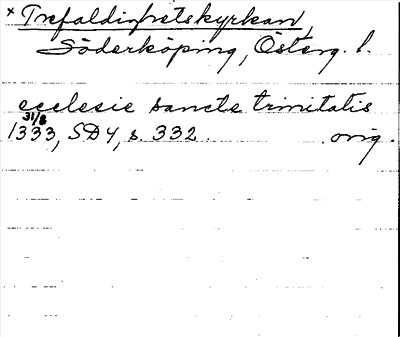 × Trefaldighetskyrkan,
Söderköping, Österg. l.
ecclesie sancte trinitatis
31/8
1333, SD 4, s. 332. orig.